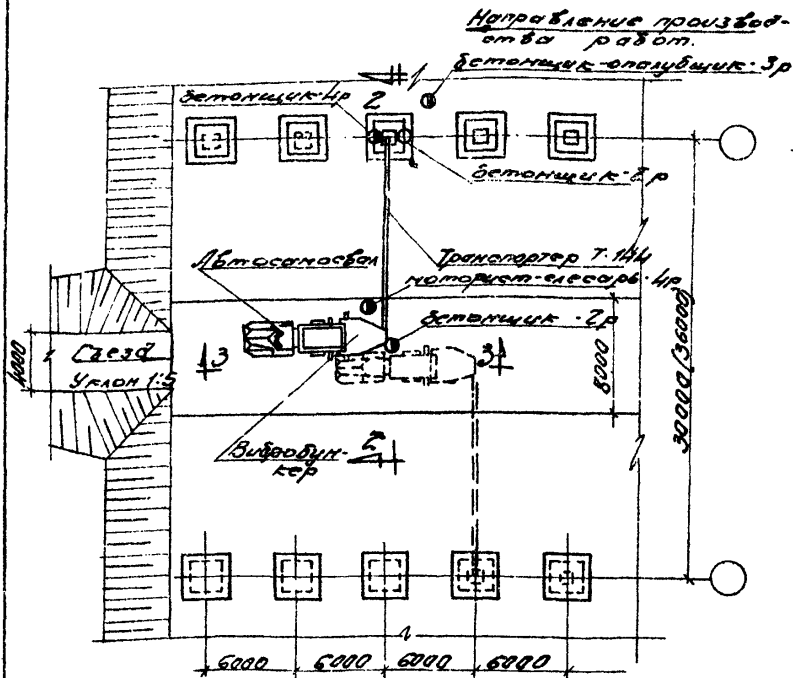 Направление производ-
ства работ.
бетонщик-опалубщик-3р
бетонщик-4р
2
бетонщик-2р
Автосамосвал
Транспортер Т-144
моторист-слесарь-4р
бетонщик-2р
4000
Съезд
Уклон 1:5
3
3
8000
30000/36000
Вибробун-
кер
2
6000 6000 6000 6000